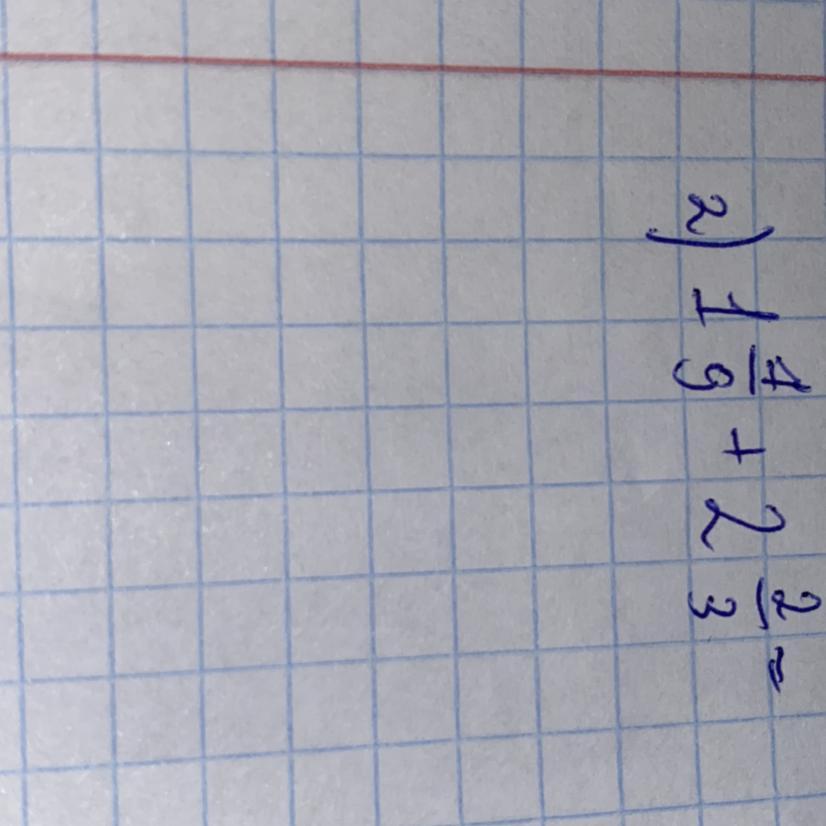 2) 1 4/9 + 2 2/3 =